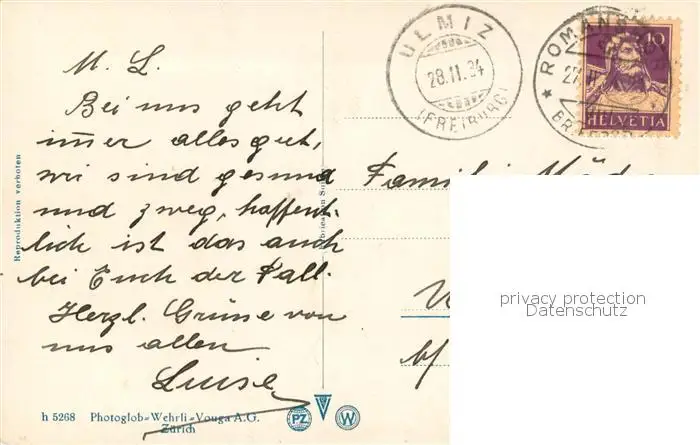 M. L.
Bei uns geht
immer alles gut,
wir sind gesund
und zweg, hoffent-
lich ist das auch
bei Euch der Fall.
Herzl. Grüsse von
uns allen
Luise
Reproduktion verboten
h 5268 Photoglob=Wehrli=Vouga A.G.
Zürich
PZ
W
ULMIZ
28.II.34
(FREIBURG)
ROMANS
10
HELVETIA
Familie
b/
privacy protection
Datenschutz